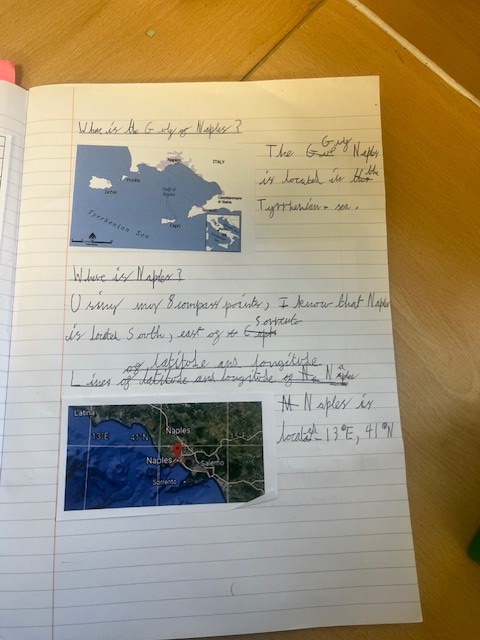 Where is the Gulf of Naples?
The Gulf Naples
is located in the
Tyrrhenian sea.
Naples
ITALY
Procida
Ischia
Gulf of
Naples
Sorrento
Capri
Tyrrhenian Sea
Where is Naples?
Using my 8 compass points, I know that Naples
is located South, east of Sorrento
of latitude and longitude
Lines of latitude and longitude of Naples
Latina
13°E
41°N
Naples
15°E
Naples
Salerno
Sorrento
Naples is
located 13°E, 41°N